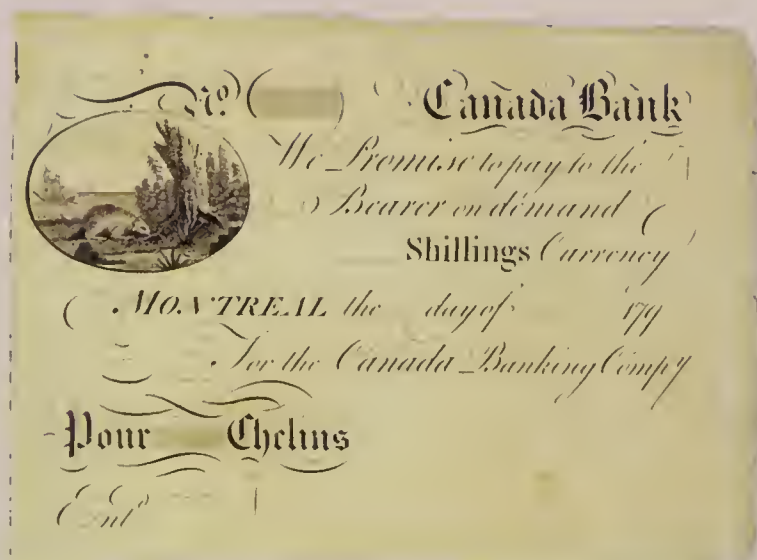 No. Canada Bank
We Promise to pay to the
Bearer on demand
Shillings Currency
MONTREAL the day of 179
For the Canada Banking Compy
Pour Chelins
Entd